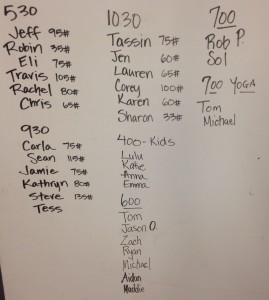 530
Jeff 95#
Robin 35#
Eli 75#
Travis 105#
Rachel 80#
Chris 65#
930
Carla 75#
Sean 115#
Jamie 75#
Kathryn 80#
Steve 135#
Tess
1030
Tassin 75#
Jen 60#
Lauren 65#
Corey 100#
Karen 60#
Sharon 33#
400-Kids
Lulu
Katie
Anna
Emma
600
Tom
Jason O.
Zach
Ryan
Michael
Aidan
Maddie
700
Rob P.
Sol
700 YOGA
Tom
Michael